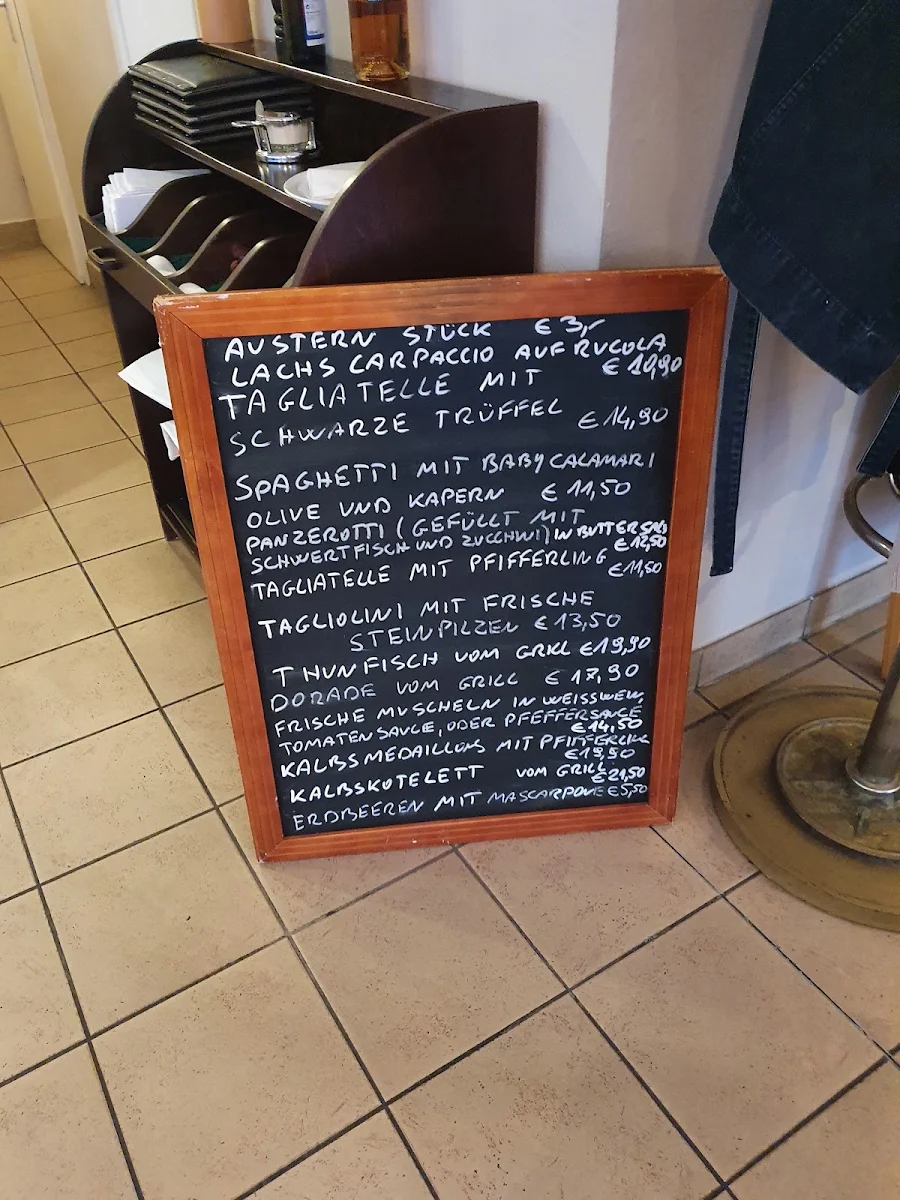 AUSTERN STÜCK € 3,-
LACHS CARPACCIO AUF RUCOLA
€ 10,90
TAGLIATELLE MIT
SCHWARZE TRÜFFEL € 14,90
SPAGHETTI MIT BABY CALAMARI
OLIVE UND KAPERN € 11,50
PANZEROTTI (GEFÜLLT MIT
SCHWERTFISCH UND ZUCCHINI) IN BUTTER
€ 12,50
TAGLIATELLE MIT PFIFFERLING € 11,50
TAGLIOLINI MIT FRISCHE
STEINPILZEN € 13,50
THUNFISCH VOM GRILL € 19,90
DORADE VOM GRILL € 17,90
FRISCHE MUSCHELN IN WEISSWEIN,
TOMATENSAUCE, ODER PFEFFERSAUCE
€ 14,50
KALBSMEDAILLONS MIT PFIFFERLING
€ 19,90
KALBSKOTELETT VOM GRILL € 21,50
ERDBEEREN MIT MASCARPONE € 5,50